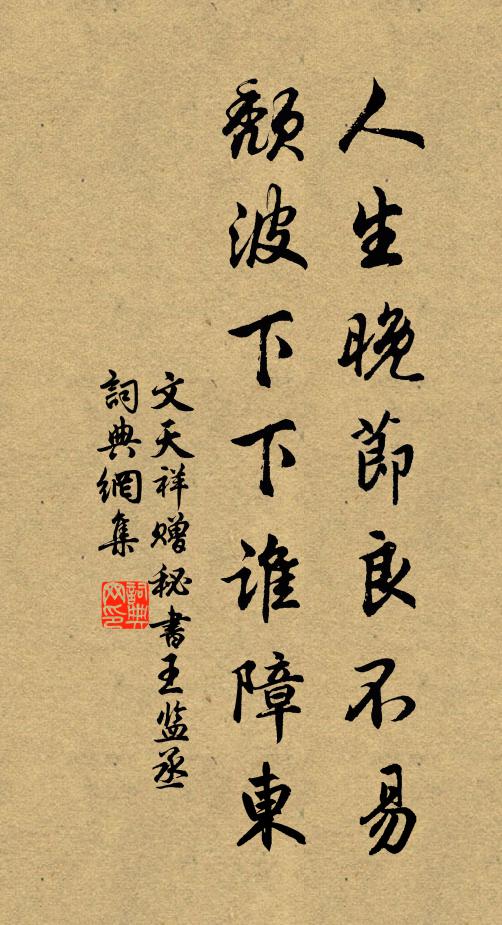 人生晚節良不易
頹波下下誰障東
文天祥贈秘書王监丞
詞典網集
詞典网印